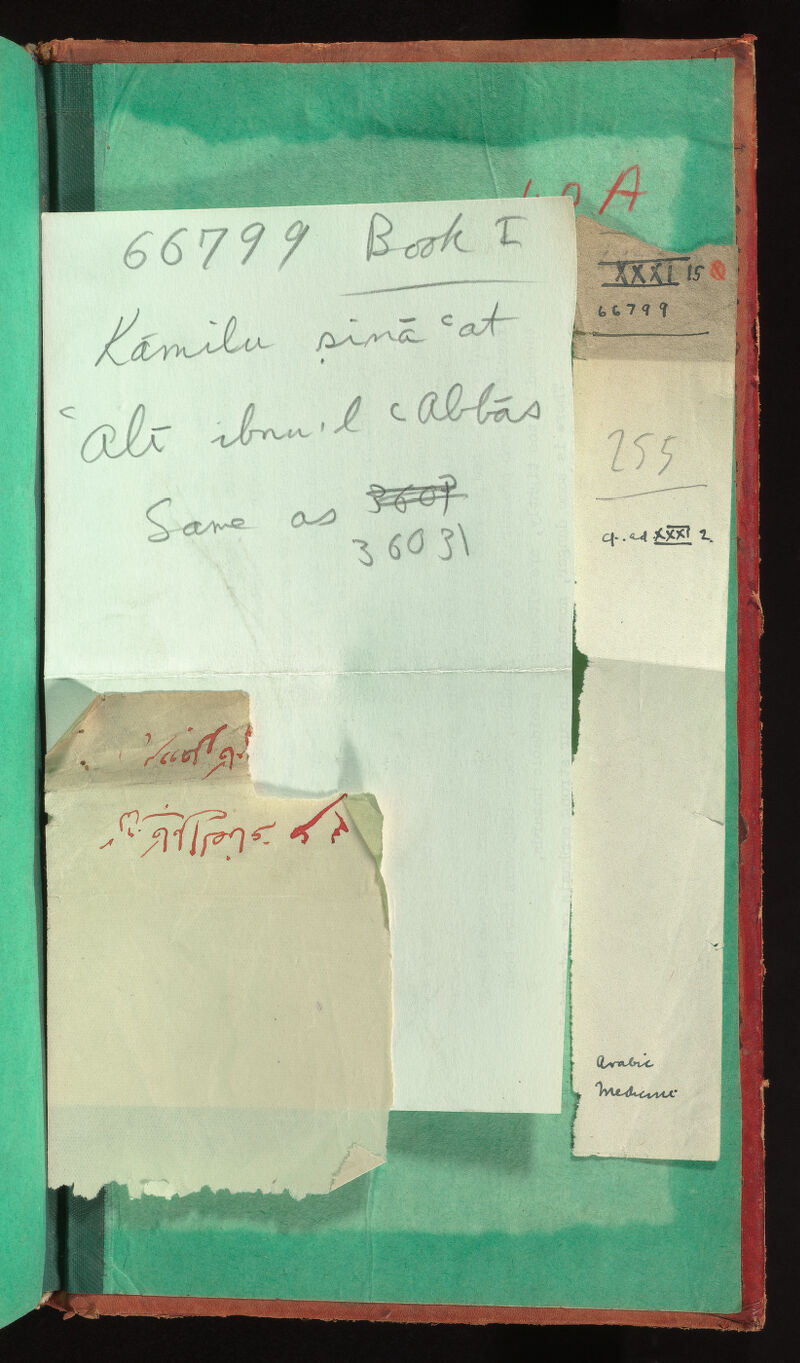 A
66799 Book I
Kāmilu ṣinā ʿat
ʿAlī ibnu'l ʿAbbās
Same as 3609
36031
XXXI 15
66799
255
cf. ad XXXI 2.
Arabic
Medicine